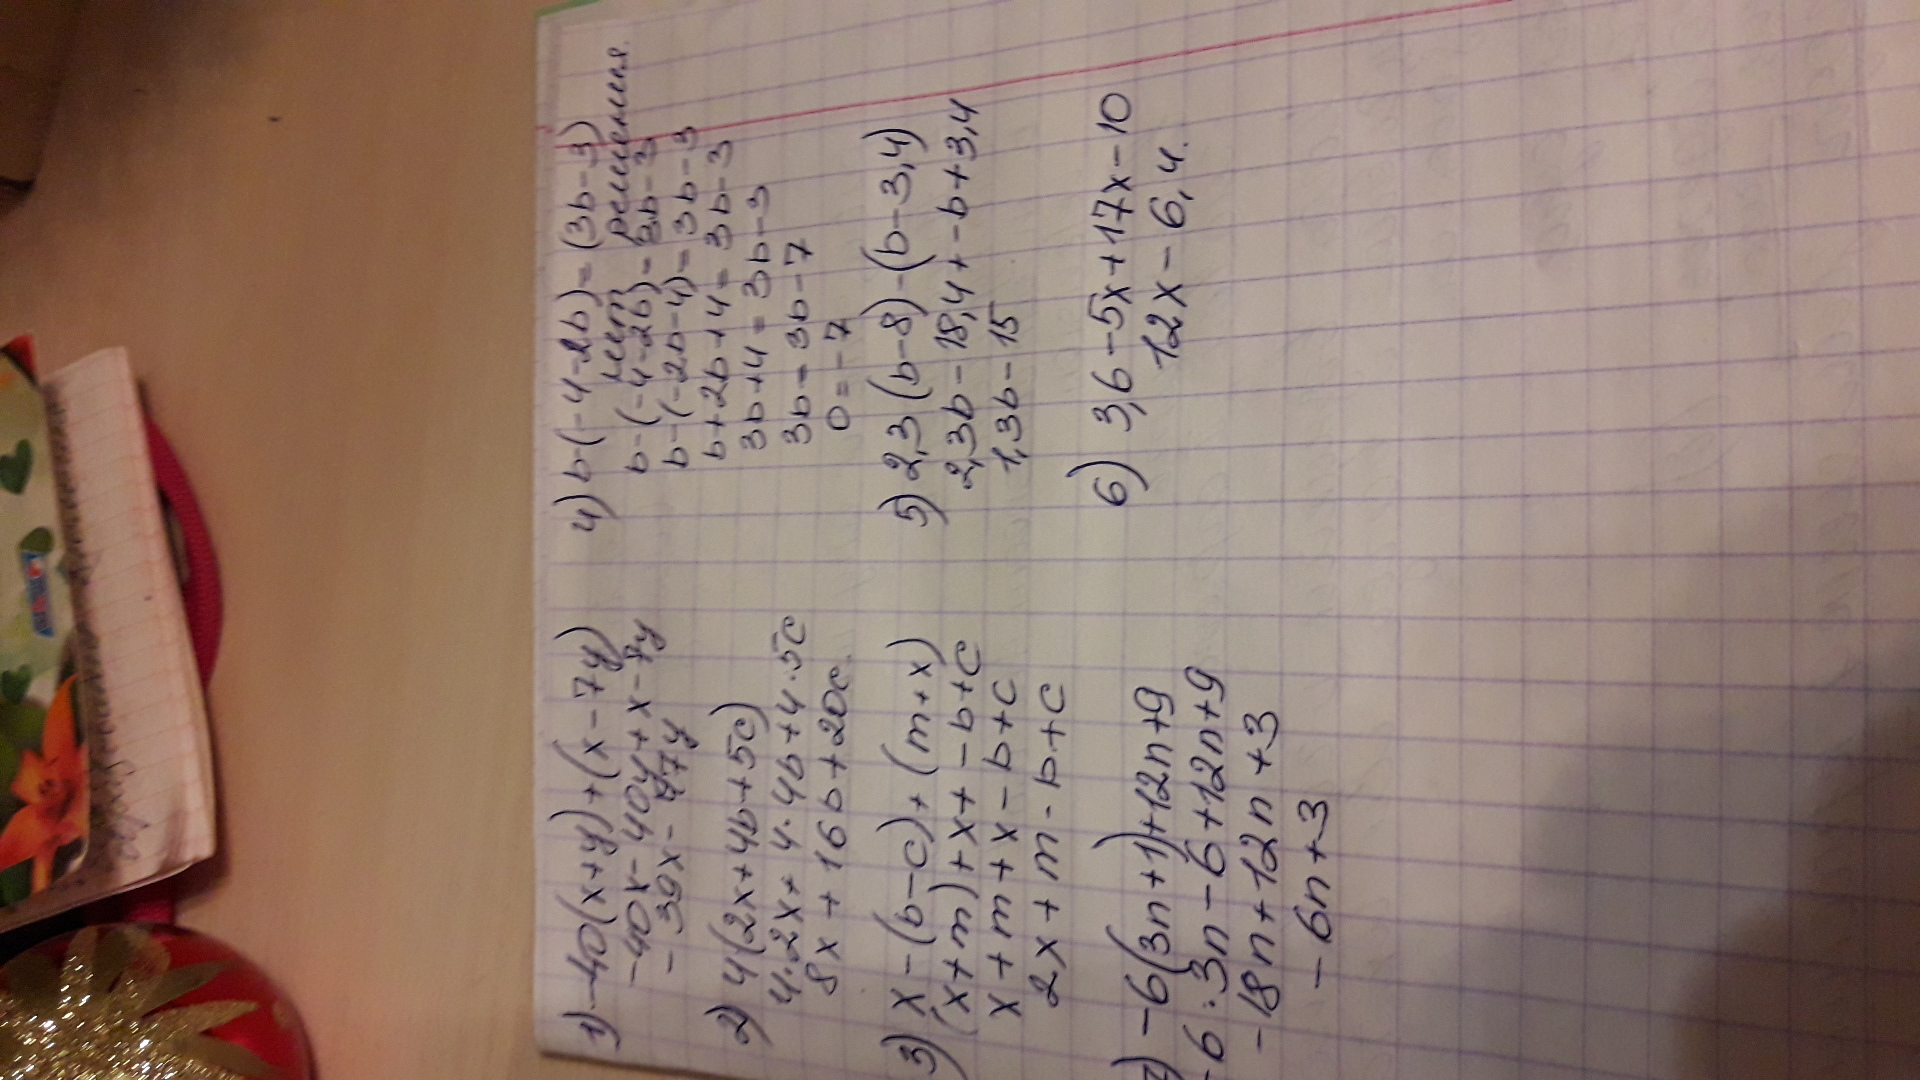 1) -40(x+y)+(x-7y)
-40x-40y+x-7y
-39x-47y
2) 4(2x+4b+5c)
4·2x+4·4b+4·5c
8x+16b+20c
3) x-(b-c)+(m+x)
(x+m)+x+-b+c
x+m+x-b+c
2x+m-b+c
7) -6(3n+1)+12n+9
-6·3n-6+12n+9
-18n+12n+3
-6n+3
4) b-(-4-2b)=(3b-3)
нет решения.
b-(-4-2b)=3b-3
b-(-2b-4)=3b-3
b+2b+4=3b-3
3b+4=3b-3
3b=3b-7
0=-7
5) 2,3(b-8)-(b-3,4)
2,3b-18,4+-b+3,4
1,3b-15
6) 3,6-5x+17x-10
12x-6,4.